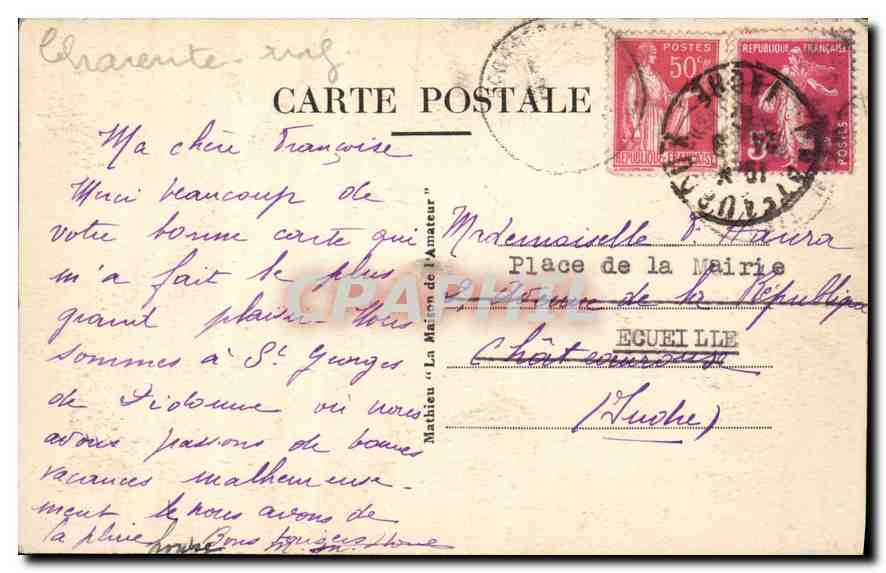 Charente
CARTE POSTALE
POSTES
50c
REPUBLIQUE FRANÇAISE
REPUBLIQUE FRANÇAISE
POSTES
INDRE
Ma chère Françoise
Merci beaucoup de
votre bonne carte qui
m'a fait le plus
grand plaisir. Nous
sommes à St Georges
de Didonne où nous
avons passons de bonnes
vacances malheureuse-
ment nous avons de
la pluie Bons baisers
Mathieu "La Maison de l'Amateur"
Mademoiselle F.
Place de la Mairie
2, Avenue de la République
ECUEILLE
Châteauroux
(Indre)
GRAPHIL